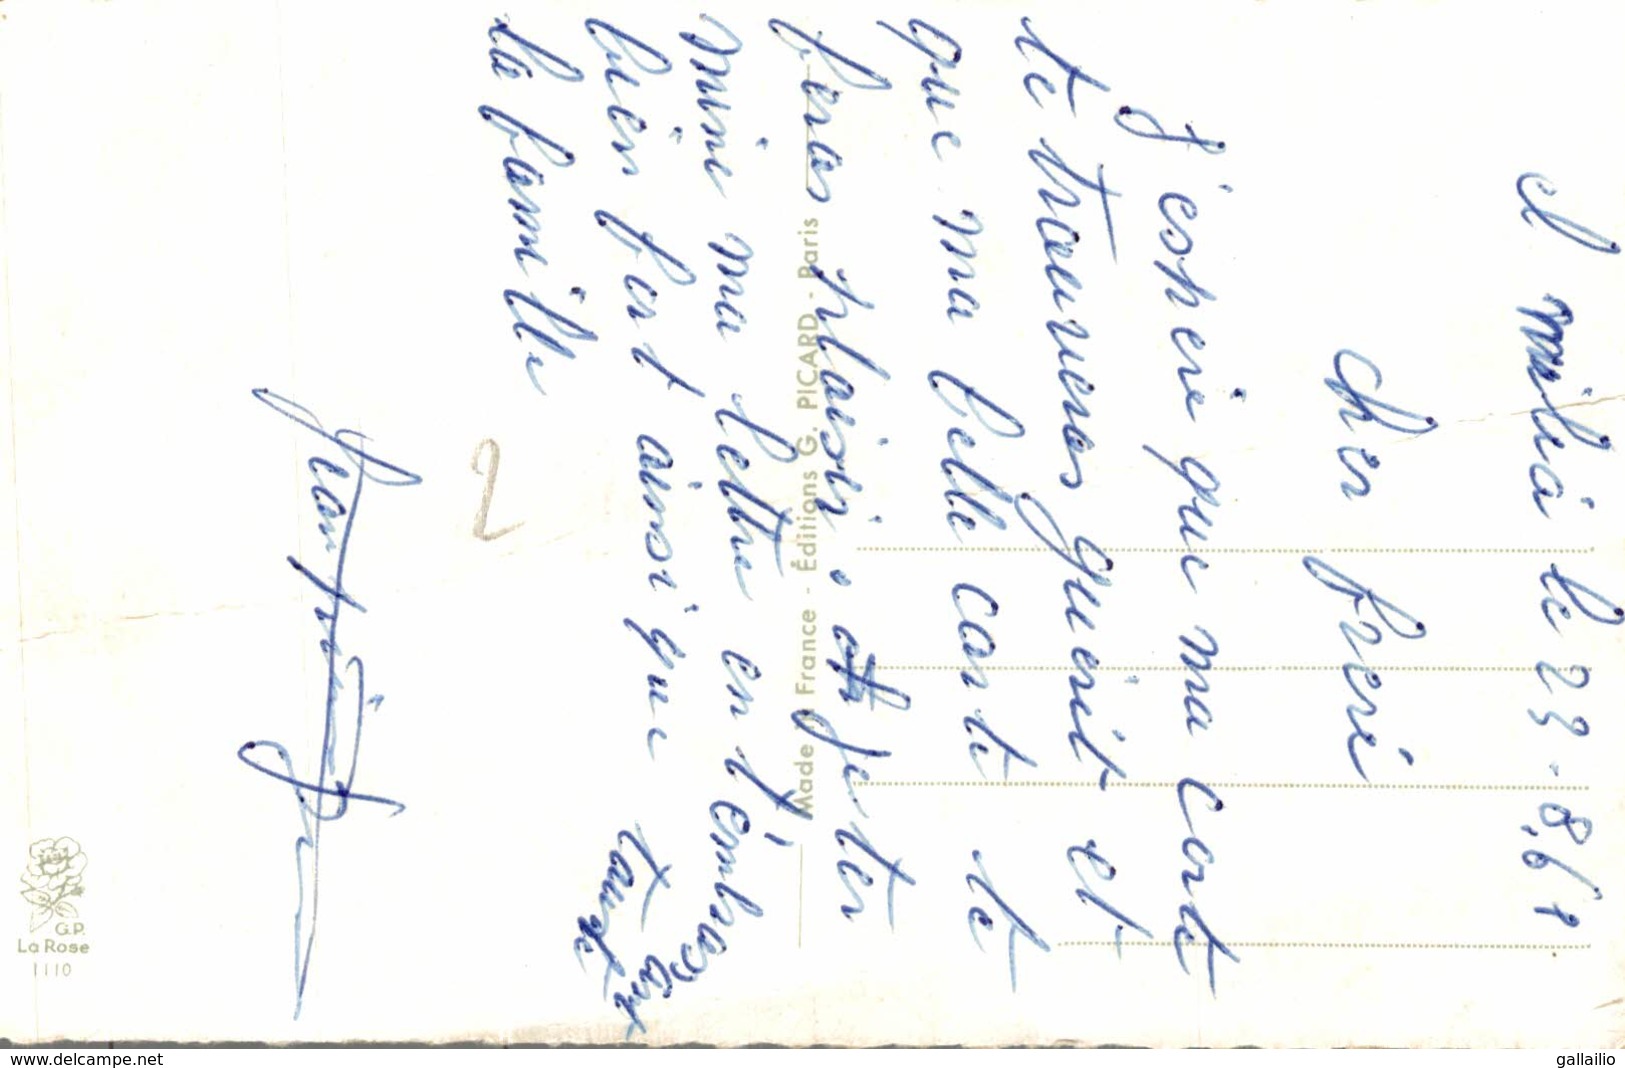 el milia le 23.8.61
cher frere
j'espere que ma carte
te trouveras guerit et
que ma belle carte te
feras plaisir. jeter
mine ma lettre en t'embras
bien fort ainsi que toute
la famille
2
Made in France - Éditions G. PICARD - Paris
G.P.
La Rose
1110
https://www.delcampe.net
gallailio